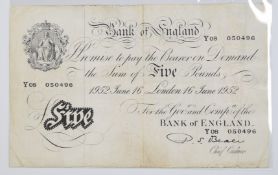 Bank of England
Y08 050496
Promise to pay the Bearer on Demand
the Sum of Five Pounds
Y08 050496
1952 June 16 London 16 June 1952
For the Gov.r and Comp.a of the
BANK OF ENGLAND.
Y08 050496
Five
P. S. Beale
Chief Cashier